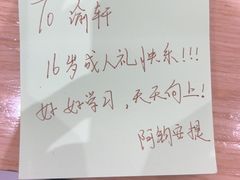 To 渝轩
16岁成人礼快乐!!!
好好学习，天天向上!
阿钧